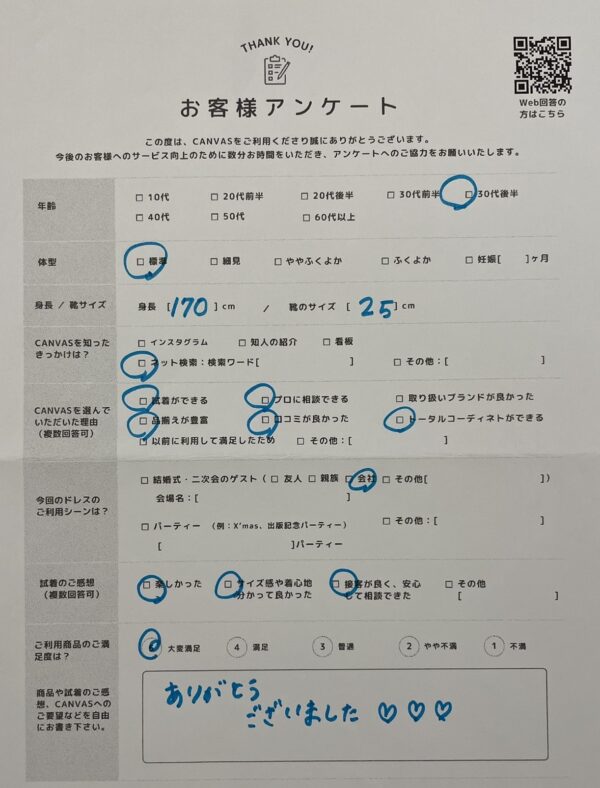 THANK YOU!
お客様アンケート
Web回答の
方はこちら
この度は、CANVASをご利用くださり誠にありがとうございます。
今後のお客様へのサービス向上のために数分お時間をいただき、アンケートへのご協力をお願いいたします。
年齢
□ 10代 □ 20代前半 □ 20代後半 □ 30代前半 □ 30代後半
□ 40代 □ 50代 □ 60代以上
体型
□ 標準 □ 細見 □ ややふくよか □ ふくよか □ 妊娠[ ]ヶ月
身長 / 靴サイズ
身長 [170] cm / 靴のサイズ [25] cm
CANVASを知った
きっかけは？
□ インスタグラム □ 知人の紹介 □ 看板
□ ネット検索：検索ワード[ ] □ その他：[ ]
CANVASを選んで
いただいた理由
（複数回答可）
□ 試着ができる □ プロに相談できる □ 取り扱いブランドが良かった
□ 品揃えが豊富 □ 口コミが良かった □ トータルコーディネトができる
□ 以前に利用して満足したため □ その他：[ ]
今回のドレスの
ご利用シーンは？
□ 結婚式・二次会のゲスト（ □ 友人 □ 親族 □ 会社 □ その他[ ]）
会場名：[ ]
□ パーティー （例：X'mas、出版記念パーティー） □ その他：[ ]
[ ]パーティー
試着のご感想
（複数回答可）
□ 楽しかった □ サイズ感や着心地 □ 接客が良く、安心 □ その他
分かって良かった して相談できた [ ]
ご利用商品のご満
足度は？
大変満足 4 満足 3 普通 2 やや不満 1 不満
商品や試着のご感
想、CANVASへの
ご要望などを自由
にお書き下さい。
ありがとう
ございました ♡ ♡ ♡